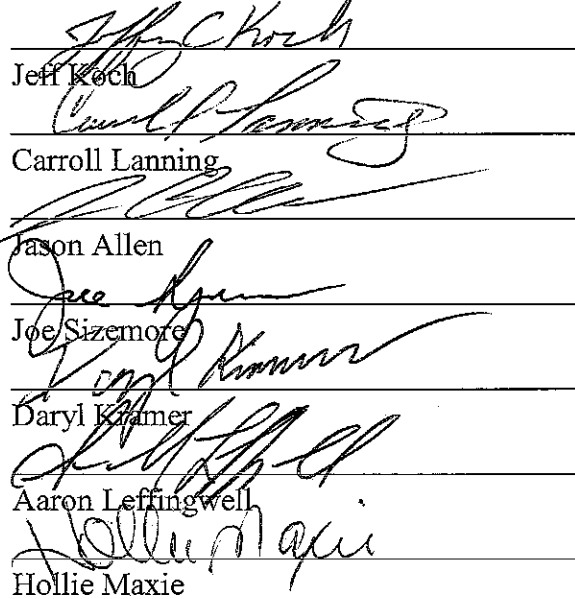 Jeffrey C Koch
Jeff Koch
Carroll Lanning
Jason Allen
Joe
Joe Sizemore
Daryl Kramer
Daryl Kramer
Aaron Leffingwell
Hollie Maxie
Hollie Maxie